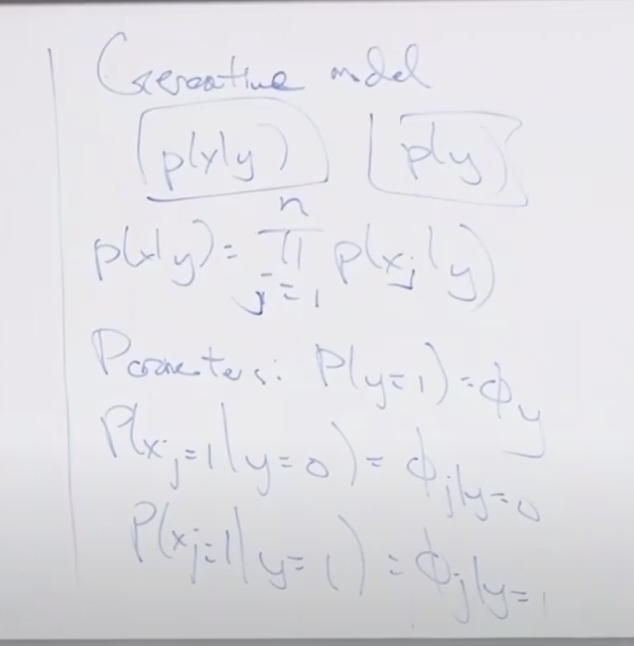 Generative model
p(x|y) p(y)
p(x|y) = ∏_{j=1}^{n} p(x_j|y)
Parameters: P(y=1) = ϕ_y
P(x_j=1|y=0) = ϕ_{j|y=0}
P(x_j=1|y=1) = ϕ_{j|y=1}